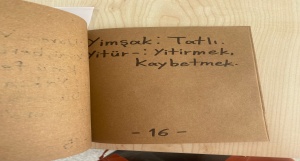 Yimşak: Tatlı.
Yitür-: Yitirmek,
Kaybetmek.
- 16 -